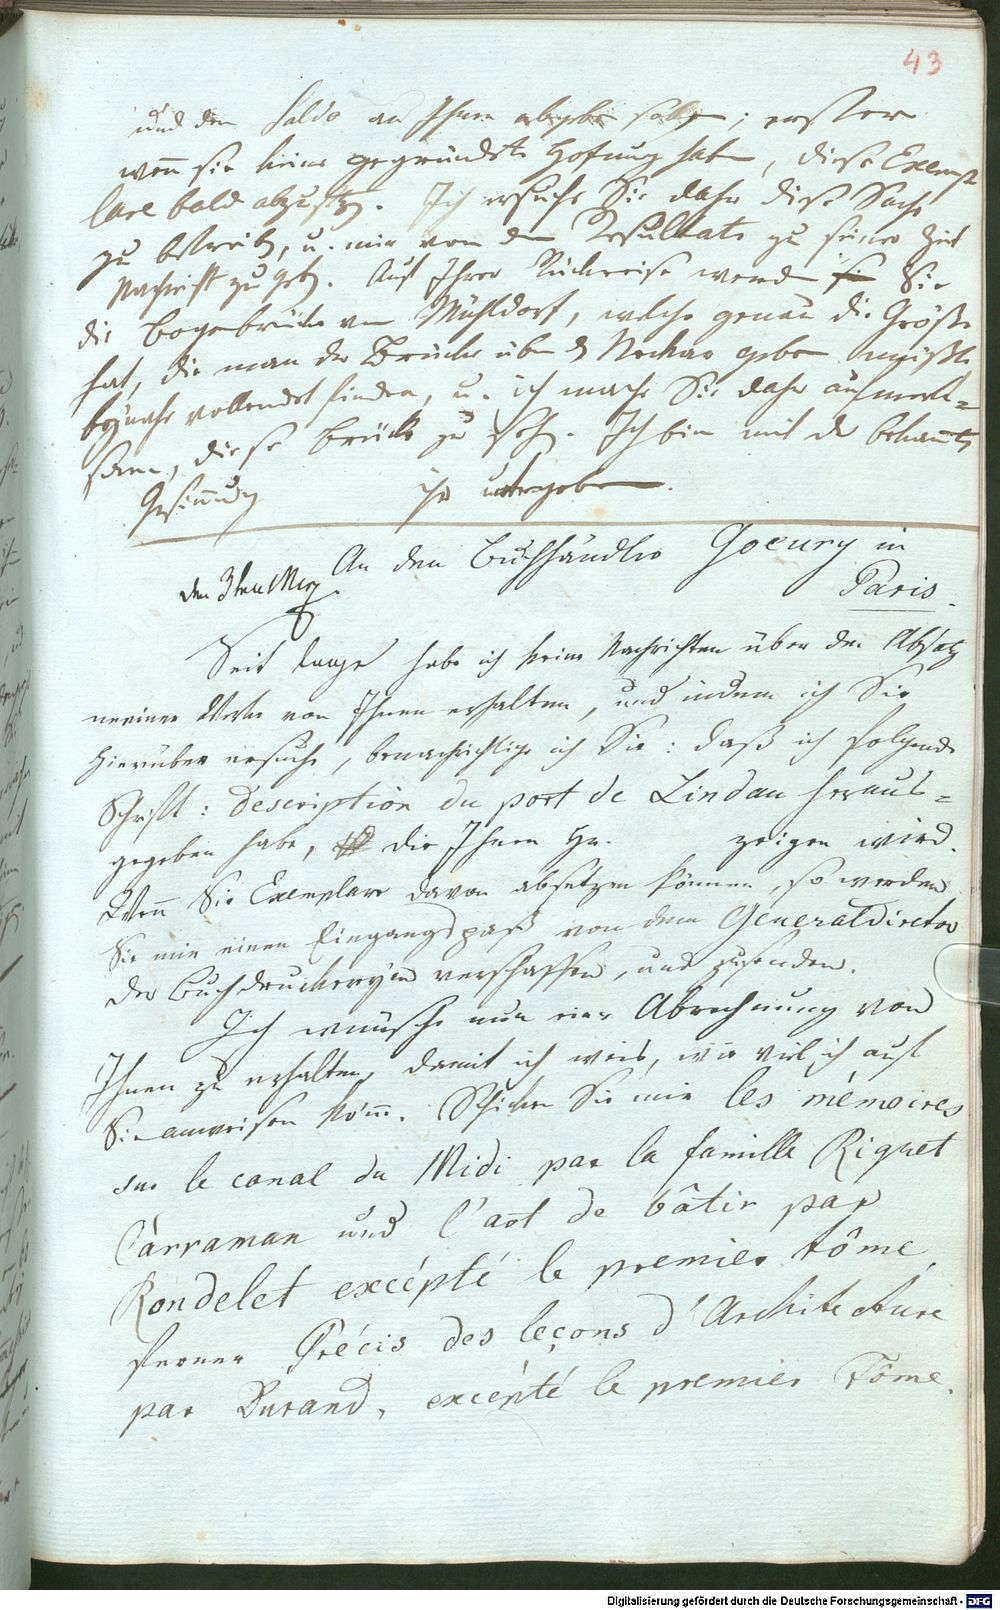 43
und den Saldo an Ihnen abgeben sollen; erstere
wenn sie keine gegründete Hofnung haben, diese Exemp
lare bald abzusetzen. Ich ersuche Sie daher diese Sache
zu betreiben, u. mir von dem Resultate zu seiner Zeit
Nachricht zu geben. Auf Ihrer Rückreise werden Sie
die Bogenbrücke von Mühldorf, welche genau die Größe
hat, die man der Brücke über den Neckar geben müßte
beynahe vollendet finden, u. ich mache Sie daher aufmerk=
sam, diese Brücke zu sehen. Ich bin mit der bekannten
Gesinnung ihr untergebener.
An den Buchhändler Goeury in
den 3ten Merz. Paris.
Seit lange habe ich keine Nachrichten über den Absatz
meiner Werke von Ihnen erhalten, und indem ich Sie
hierüber ersuche, benachrichtige ich Sie: daß ich folgende
Schrift: Description du port de Lindau heraus=
gegeben habe, die Ihnen Hr. zeigen wird.
Wenn Sie Exemplare davon absetzen können, so werden
Sie mir einen Eingangspaß von dem Generaldirector
der Buchdruckereyen verschaffen, und zusenden.
Ich wünsche nun eine Abrechnung von
Ihnen zu erhalten, damit ich weis, wie viel ich auf
Sie anweisen könne. Schicken Sie mir les mémoires
sur le canal du Midi par la famille Riquet
Carraman und l'art de bâtir par
Rondelet excépté le premier tôme,
ferner Précis des leçons d'Architecture
par Durand, excépté le premier Tôme.
Digitalisierung gefördert durch die Deutsche Forschungsgemeinschaft - DFG